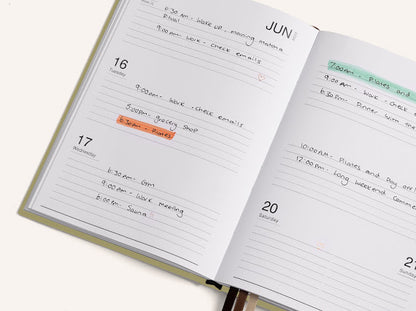 JUN
6:30 AM - Wake up, morning matcha
Ritual
9:00AM - Work - Check emails
16
Tuesday
9:00AM - Work - Check emails
5:00PM - Grocery shop
6:30AM - Pilates
17
Wednesday
6:30AM - Gym
9:00AM - Work meeting
6:00AM - Sauna
7:00AM - Pilates and
9:00AM - Work - Check
6:30PM - Dinner with
10:00AM - Pilates and Day off
12:00PM - Long weekend
20
Saturday
2
Sunday